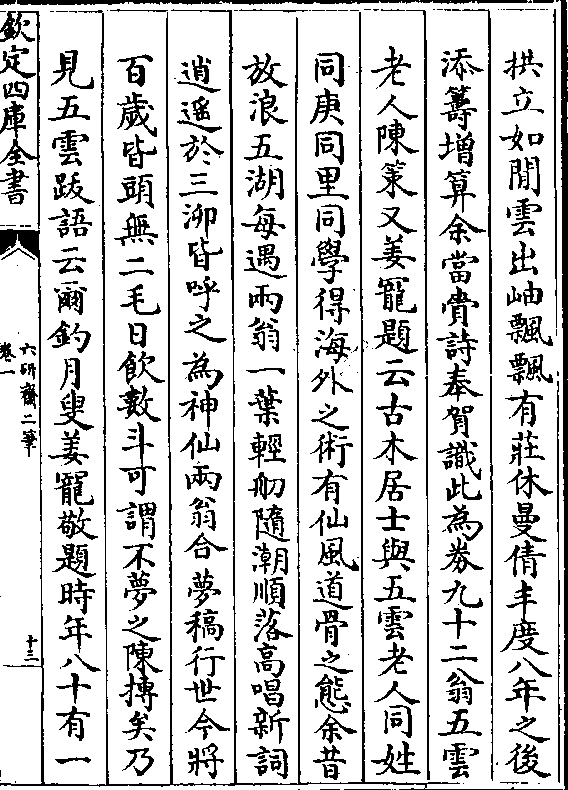 拱立如閒雲出岫飄飄有莊休曼倩丰度八年之後
添籌增算余當賷詩奉賀識此為劵九十二翁五雲
老人陳策又姜寵題云古木居士與五雲老人同姓
同庚同里同學得海外之術有仙風道骨之態余昔
放浪五湖每遇兩翁一葉輕舠隨潮順落高唱新詞
逍遥於三泖皆呼之為神仙兩翁合夢稿行世今將
百歲皆頭無二毛日飲數斗可謂不夢之陳摶矣乃
見五雲跋語云爾釣月叟姜寵敬題時年八十有一
欽定四庫全書
六研齋二筆
卷一
十三